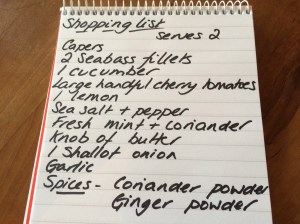 Shopping list
serves 2
Capers
2 Seabass fillets
1 cucumber
Large handful cherry tomatoes
1 lemon
Sea salt + pepper
Fresh mint + coriander
Knob of butter
1 Shallot onion
Garlic
Spices - Coriander powder
Ginger powder